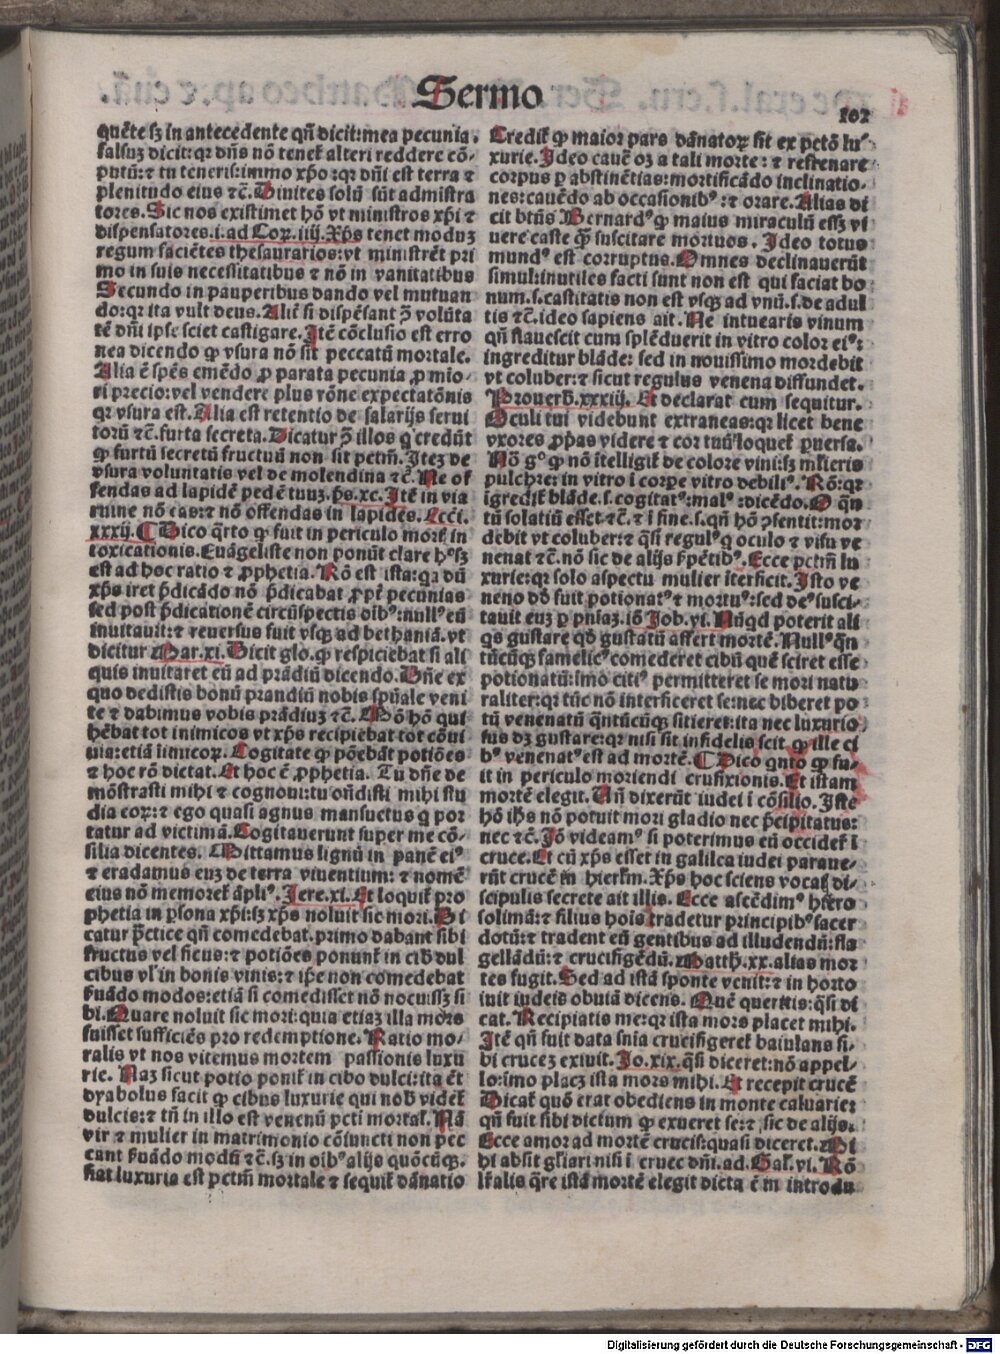 Sermo
102
quēte sꝫ in antecedente qñ dicit: mea pecunia.
falsuꝫ dicit: qꝛ dñs nō tenet̃ alteri reddere cō-
putū: ⁊ tu teneris: immo xp̄o: qꝛ dñi est terra ⁊
plenitudo eius ⁊c̄. Diuites solū sūt admistra
tores. Sic nos existimet hō vt ministros xp̄i ⁊
dispensatores. i. ad Coꝝ. iiij. Xp̄s tenet moduꝫ
regum faciētes thesaurarios: vt ministrēt pri
mo in suis necessitatibus ⁊ nō in vanitatibus
Secundo in pauperibus dando vel mutuan
do: qꝛ ita vult deus. Alit̃ si dispēsant ꝯ̄ volūta
tē dñi ipse sciet castigare. Itē cōclusio est erro
nea dicendo ꝙ vsura nō sit peccatū mortale.
Alia ē spēs emēdo ꝓ parata pecunia ꝓ mio-
ri precio: vel vendere plus rōne expectatōnis
qꝛ vsura est. Alia est retentio de salarijs serui
torū ⁊c̄. furta secreta. Dicatur ꝯ̄ illos q̇ credūt
ꝙ furtū secretū fructuū non sit petm̄. Iteꝫ de
vsura voluntatis vel de molendina ⁊c̄. Ne of
fendas ad lapidē pedē tuuꝫ. p̄s. xc. Itē in via
ruine nō eas: ⁊ nō offendas in lapides. Ecci.
xxxij. ¶ Dico q̄rto ꝙ fuit in periculo mort̃ in
toxicationis. Euāgeliste non ponūt clare hꝰsꝫ
est ad hoc ratio ⁊ ꝓphetia. Rō est ista: qꝛ dū
xp̄s iret p̄dicādo nō p̄dicabat ꝓpt̃ pecunias
sed post p̄dicationē circūspectis oībꝰ: nullꝰ eū
inuitauit: ⁊ reuersus fuit vsqꝫ ad bethaniā. vt
dicitur Mar. xi. Dicit glo. ꝙ respiciebat si ali
quis inuitaret eū ad prādiū dicendo. Dñe ex
quo dedistis bonū prandiū nobis spūale veni
te ⁊ dabimus vobis prādiuꝫ ⁊c̄. Mō hō qui
hēbat tot inimicos vt xp̄s recipiebat tot cōui
uia: etiā iimicoꝝ. Cogitate ꝙ poēbāt potiōes
⁊ hoc rō dictat. Et hoc ē ꝓphetia. Tu dñe de
mōstrasti mihi ⁊ cognoui: tu oñdisti mihi stu
dia eoꝝ: ⁊ ego quasi agnus mansuetus q̇ por
tatur ad victimā. Cogitauerunt super me cō-
silia dicentes. Mittamus lignū in panē eiꝰ
⁊ eradamus euꝫ de terra viuentium: ⁊ nomē
eius nō memoret̃ āpliꝰ. Jere. xi. Et loquit̃ pro
phetia in ꝑsona xp̄i: sꝫ xp̄s noluit sic mori. Di
catur p̄ctice qñ comedebat. primo dabant sibi
fructus vel ficus: ⁊ potiōes ponunt̃ in cibꝰ dul
cibus vl̓ in bonis vinis: ⁊ ip̄e non comedebat
ẜuādo modos: etiā si comedisset nō nocuissꝫ si
bi. Quare noluit sic mori: quia etiaꝫ illa mors
fuisset sufficiēs pro redemptione. Ratio mo-
ralis vt nos vitemus mortem passionis luxu
rie. Naꝫ sicut potio ponit̃ in cibo dulci: ita ēt
dyabolus facit ꝙ cibus luxurie qui nob̓ videt̃
dulcis: ⁊ tn̄ in illo est venenū pcti mortal̃. Nā
vir ⁊ mulier in matrimonio cōiuncti non pec
cant ẜuādo modū ⁊c̄. sꝫ in oībꝰ alijs quōcūqꝫ.
fiat luxuria est petm̄ mortale ⁊ sequit̃ dānatio
Credit̃ ꝙ maior pars dānatoꝝ sit ex petō lu-
xurie. Ideo cauē oꝫ a tali morte: ⁊ refrenare
corpus ꝑ abstinētias: mortificādo inclinatio-
nes: cauēdo ab occasionibꝰ: ⁊ orare. Alias di
cit btūs Bernardꝰ ꝙ maius miraculū essꝫ vi
uere caste q̄ꝫ suscitare mortuos. Ideo totus
mundꝰ est corruptus. Omnes declinauerūt
simul: inutiles facti sunt non est qui faciat bo
num. s. castitatis non est vsqꝫ ad vnū. s. de adul
tis ⁊c̄. ideo sapiens ait. Ne intuearis vinum
qñ flauescit cum splēduerit in vitro color eiꝰ:
ingreditur blāde: sed in nouissimo mordebit
vt coluber: ⁊ sicut regulus venena diffundet.
Prouerb̓. xxxiij. Et declarat cum sequitur.
Oculi tui videbunt extraneas: qꝛ licet bene
vxores ꝓprias videre ⁊ cor tuū loquet̃ ꝑuersa.
Nō gᵒ ꝙ nō ītelligit̃ de colore vini: sꝫ ml̓ieris
pulchre: in vitro ī corꝑe vitro debiliꝰ. Rō: qꝛ
īgredit̃ blāde. s. cogitatꝰ: malꝰ: dicēdo. O qñ
tū solatiū esset ⁊c̄. ⁊ ī fine. s. qñ hō ꝯsentit: mor
debit vt coluber: ⁊ q̄si regulꝰ q̇ oculo ⁊ visu ve
nenat ⁊c̄. nō sic de alijs ẜpētibꝰ. Ecce petm̄ lu
xurie: qꝛ solo aspectu mulier īterficit. Isto ve
neno dd̓ fuit potionatꝰ ⁊ mortuꝰ: sed deꝰ susci-
tauit euꝫ ꝑ pn̄iaꝫ. iō Job. vi. Nūqd poterit ali
qs gustare qd̓ gustatū affert mortē. Nullꝰ q̄n
tūcūqꝫ famelicꝰ comederet cibū quē sciret esse
potionatū: īmo citiꝰ permitteret se mori natu
raliter: qꝛ tūc nō interficeret se: nec biberet po
tū venenatū q̄ntūcūqꝫ sitieret: ita nec luxurio
sus dꝫ gustare: qꝛ nisi sit infidelis scit ꝙ ille ci
bꝰ venenatꝰ est ad mortē. ¶ Dico q̇nto ꝙ fu-
it in periculo moriendi crufixionis. Et istam
mortē elegit. Uñ dixerūt iudei ī cōsilio. Iste
hō ih̄s nō potuit mori gladio nec p̄cipitatus:
nec ⁊c̄. Iō videamꝰ si poterimus eū occidet̃ ī
cruce. Et cū xp̄s esset in galilea iudei paraue-
rūt crucē in hierlm̄. Xp̄s hoc sciens vocat̃ di-
scipulis secrete ait illis. Ecce ascēdimꝰ hiero
solimā: ⁊ filius hoīs tradetur principibꝰ sacer
dotū: ⁊ tradent eū gentibus ad illudendū: fla
gellādū: ⁊ crucifigēdū. Matth̓. xx. alias mor
tes fugit. Sed ad istā sponte venit: ⁊ in horto
iuit iudeis obuiā dicens. Quē queritis: q̄si di
cat. Recipiatis me: qꝛ ista mors placet mihi.
Itē qñ fuit data sn̄ia crucifigeret̃ baiulans si-
bi cruceꝫ exiuit. Jo. xix. q̄si diceret: nō appel-
lo: īmo placꝫ ista mors mihi. Et recepit crucē
Dicat̃ quō erat obediens in monte caluarie:
qñ fuit sibi dictum ꝙ exueret se: ⁊ sic de alijs.
Ecce amor ad mortē crucis: quasi diceret. Mi
hi absit gl̓iari nisi ī cruce dñi. ad. Gal̓. vi. Rō
lr̃alis q̄re istā mortē elegit dicta ē in introdu
Digitalisierung gefördert durch die Deutsche Forschungsgemeinschaft - DFG